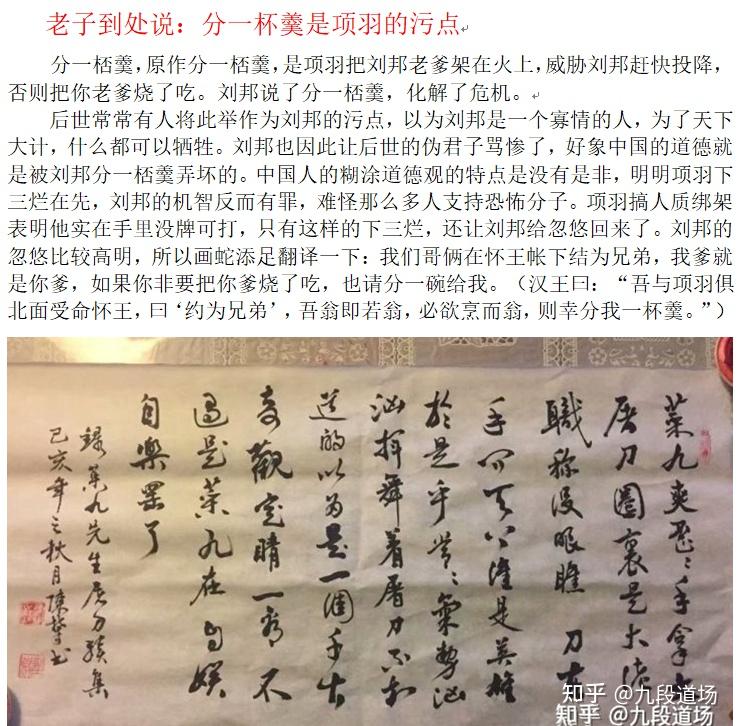 老子到处说：分一杯羹是项羽的污点
分一桮羹，原作分一桮羹，是项羽把刘邦老爹架在火上，威胁刘邦赶快投降，
否则把你老爹烧了吃。刘邦说了分一桮羹，化解了危机。
后世常常有人将此举作为刘邦的污点，以为刘邦是一个寡情的人，为了天下
大计，什么都可以牺牲。刘邦也因此让后世的伪君子骂惨了，好象中国的道德就
是被刘邦分一桮羹弄坏的。中国人的糊涂道德观的特点是没有是非，明明项羽下
三烂在先，刘邦的机智反而有罪，难怪那么多人支持恐怖分子。项羽搞人质绑架
表明他实在手里没牌可打，只有这样的下三烂，还让刘邦给忽悠回来了。刘邦的
忽悠比较高明，所以画蛇添足翻译一下：我们哥俩在怀王帐下结为兄弟，我爹就
是你爹，如果你非要把你爹烧了吃，也请分一碗给我。（汉王曰：“吾与项羽俱
北面受命怀王，曰‘约为兄弟’，吾翁即若翁，必欲烹而翁，则幸分我一杯羹。”）
菜九爽歪歪手拿大
屠刀圈裏是大佬
職称没眼瞧 刀在
手 问天下谁是英雄
於是乎 氣势汹
汹挥舞着屠刀不知
道的以为是一個千古
奇觀定睛一看不
過是菜九在自娱
自樂罢了
録菜九先生屠刀续集
己亥年之秋月陳书
知乎 @九段道场
知乎 @九段道场